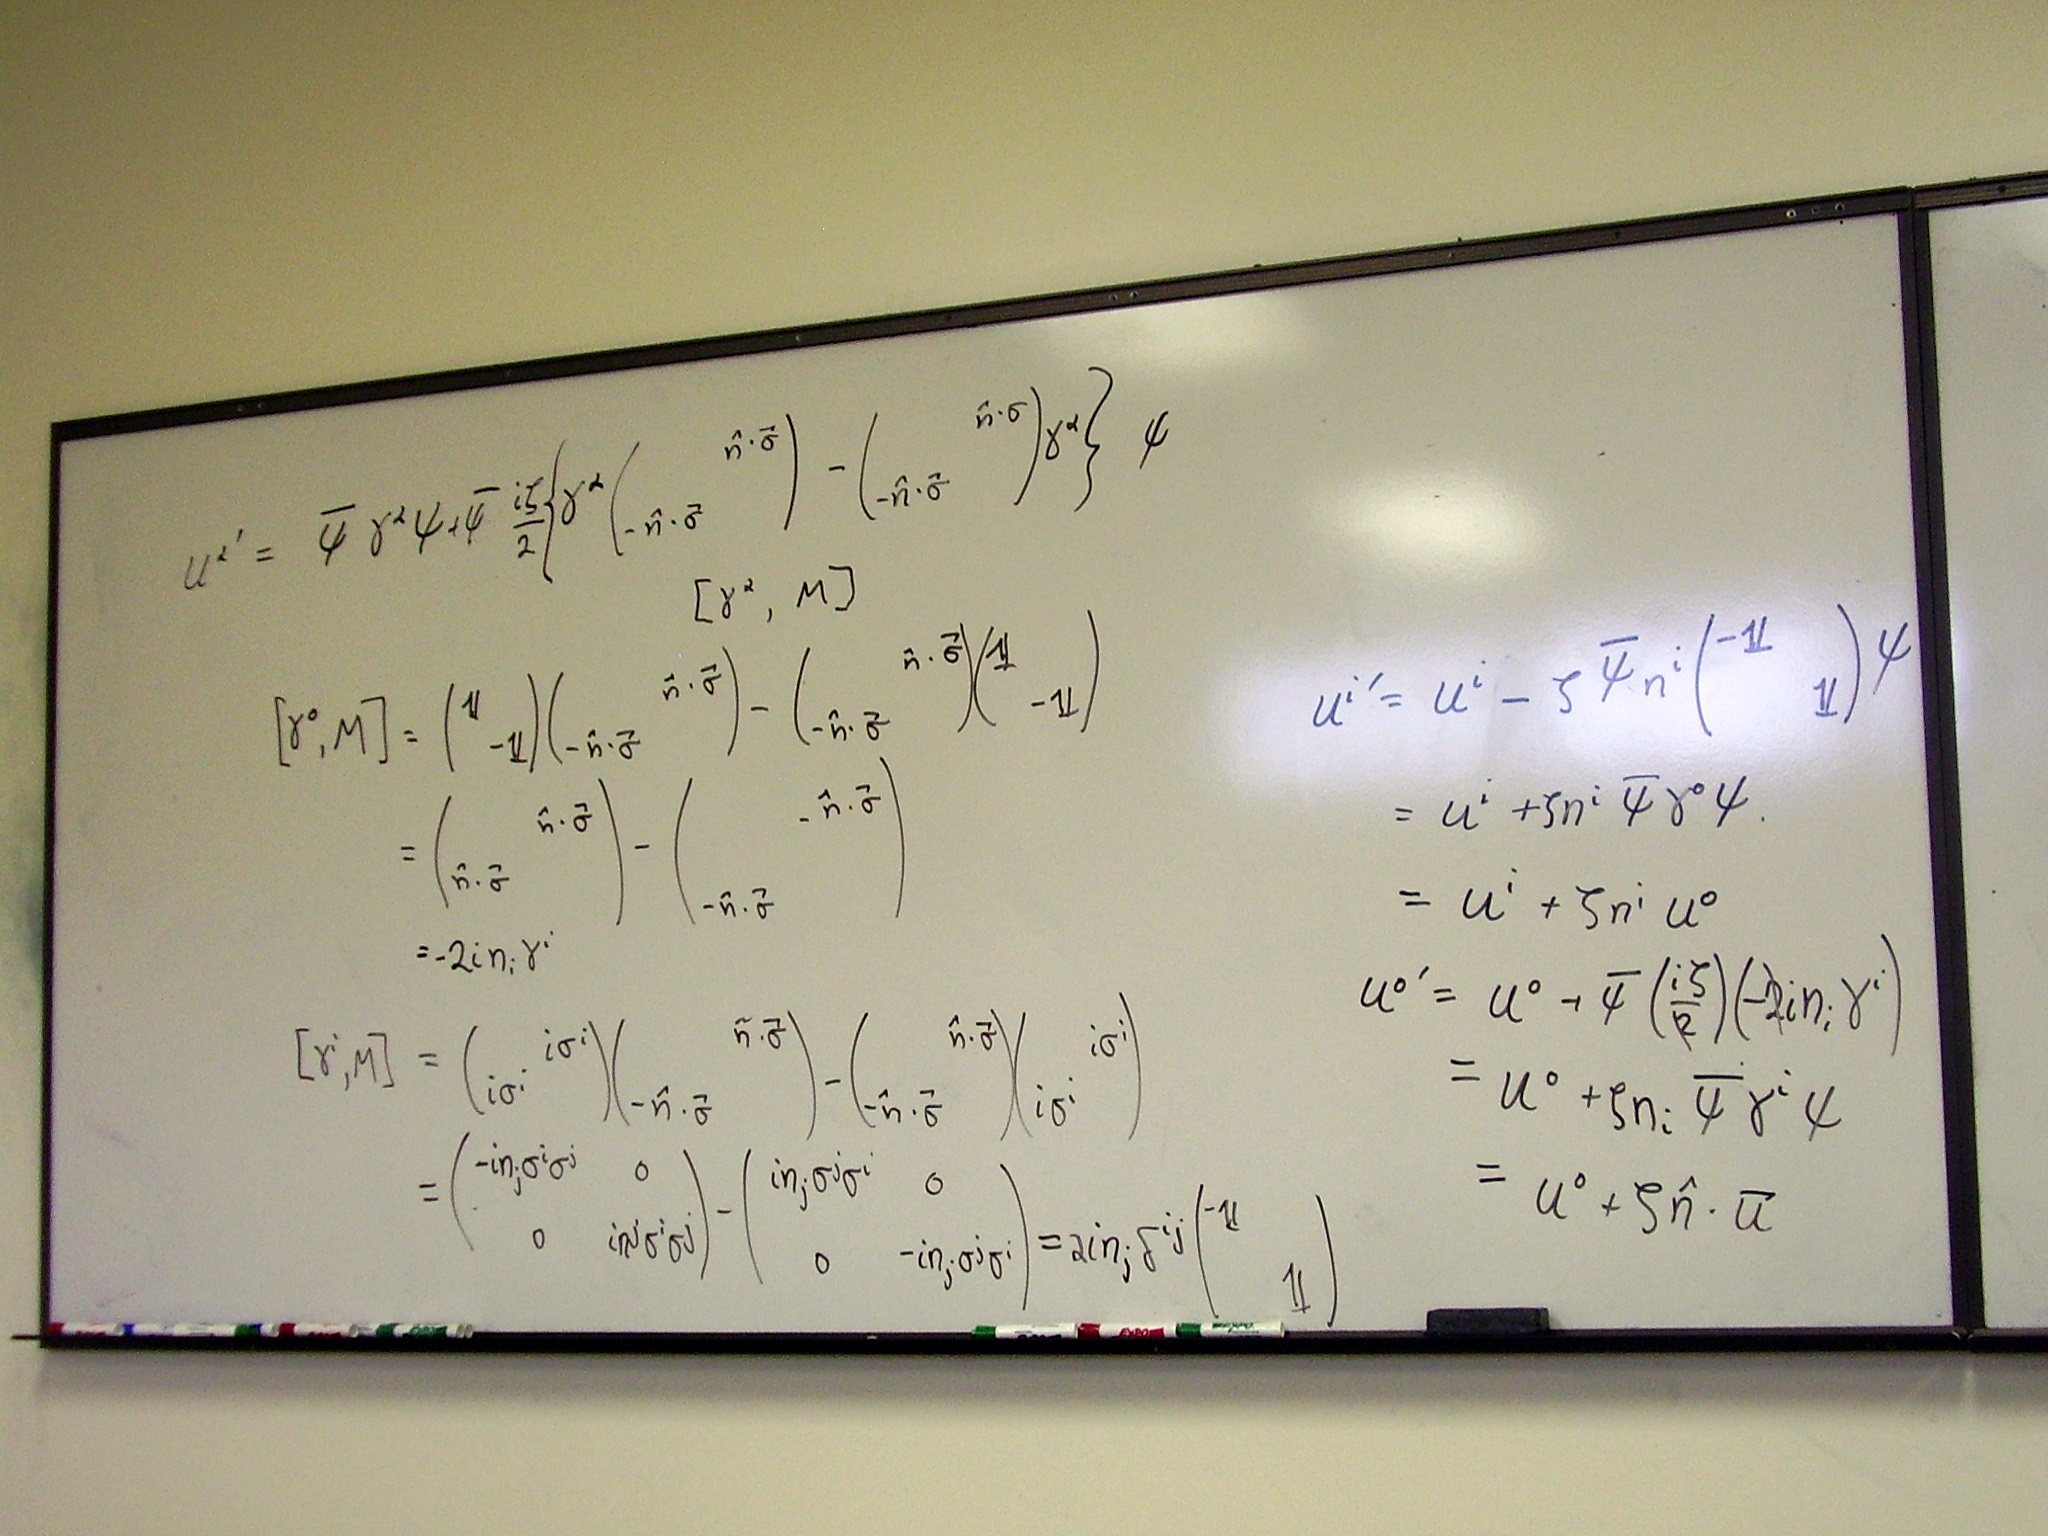 u^α' = ψ̄ γ^α ψ + ψ̄ iζ/2 { γ^α ( n̂·σ⃗ / -n̂·σ⃗ ) - ( n̂·σ / -n̂·σ⃗ ) γ^α } ψ
[γ^α, M]
[γ⁰, M] = ( 𝟙 / -𝟙 )( n̂·σ⃗ / -n̂·σ⃗ ) - ( n̂·σ⃗ / -n̂·σ⃗ )( 𝟙 / -𝟙 )
= ( n̂·σ⃗ / n̂·σ⃗ ) - ( -n̂·σ⃗ / -n̂·σ⃗ )
= -2i n_i γ^i
[γ^i, M] = ( iσ^i / iσ^i )( n̂·σ⃗ / -n̂·σ⃗ ) - ( n̂·σ⃗ / -n̂·σ⃗ )( iσ^i / iσ^i )
= ( -in_jσ^iσ^j 0 / 0 in^jσ^iσ^j ) - ( in_jσ^jσ^i 0 / 0 -in_jσ^jσ^i ) = 2in_j δ^ij ( -𝟙 / 𝟙 )
u^i' = u^i - ζ ψ̄ n^i ( -𝟙 / 𝟙 ) ψ
= u^i + ζn^i ψ̄ γ⁰ ψ.
= u^i + ζn^i u⁰
u⁰' = u⁰ + ψ̄ (iζ/2)(-2in_i γ^i)
= u⁰ + ζn_i ψ̄ γ^i ψ
= u⁰ + ζ n̂·u̅
EXPO